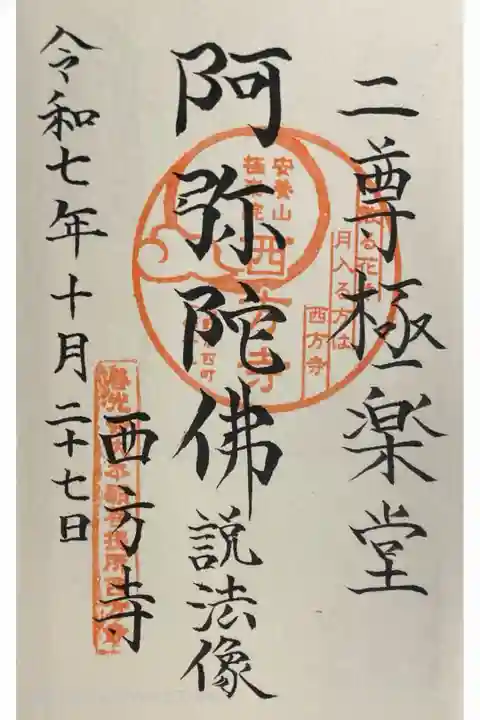 二尊極楽堂
阿弥陀佛 説法像
西方寺
令和七年十月二十七日
月入る方は
西方寺
安養山
西方寺